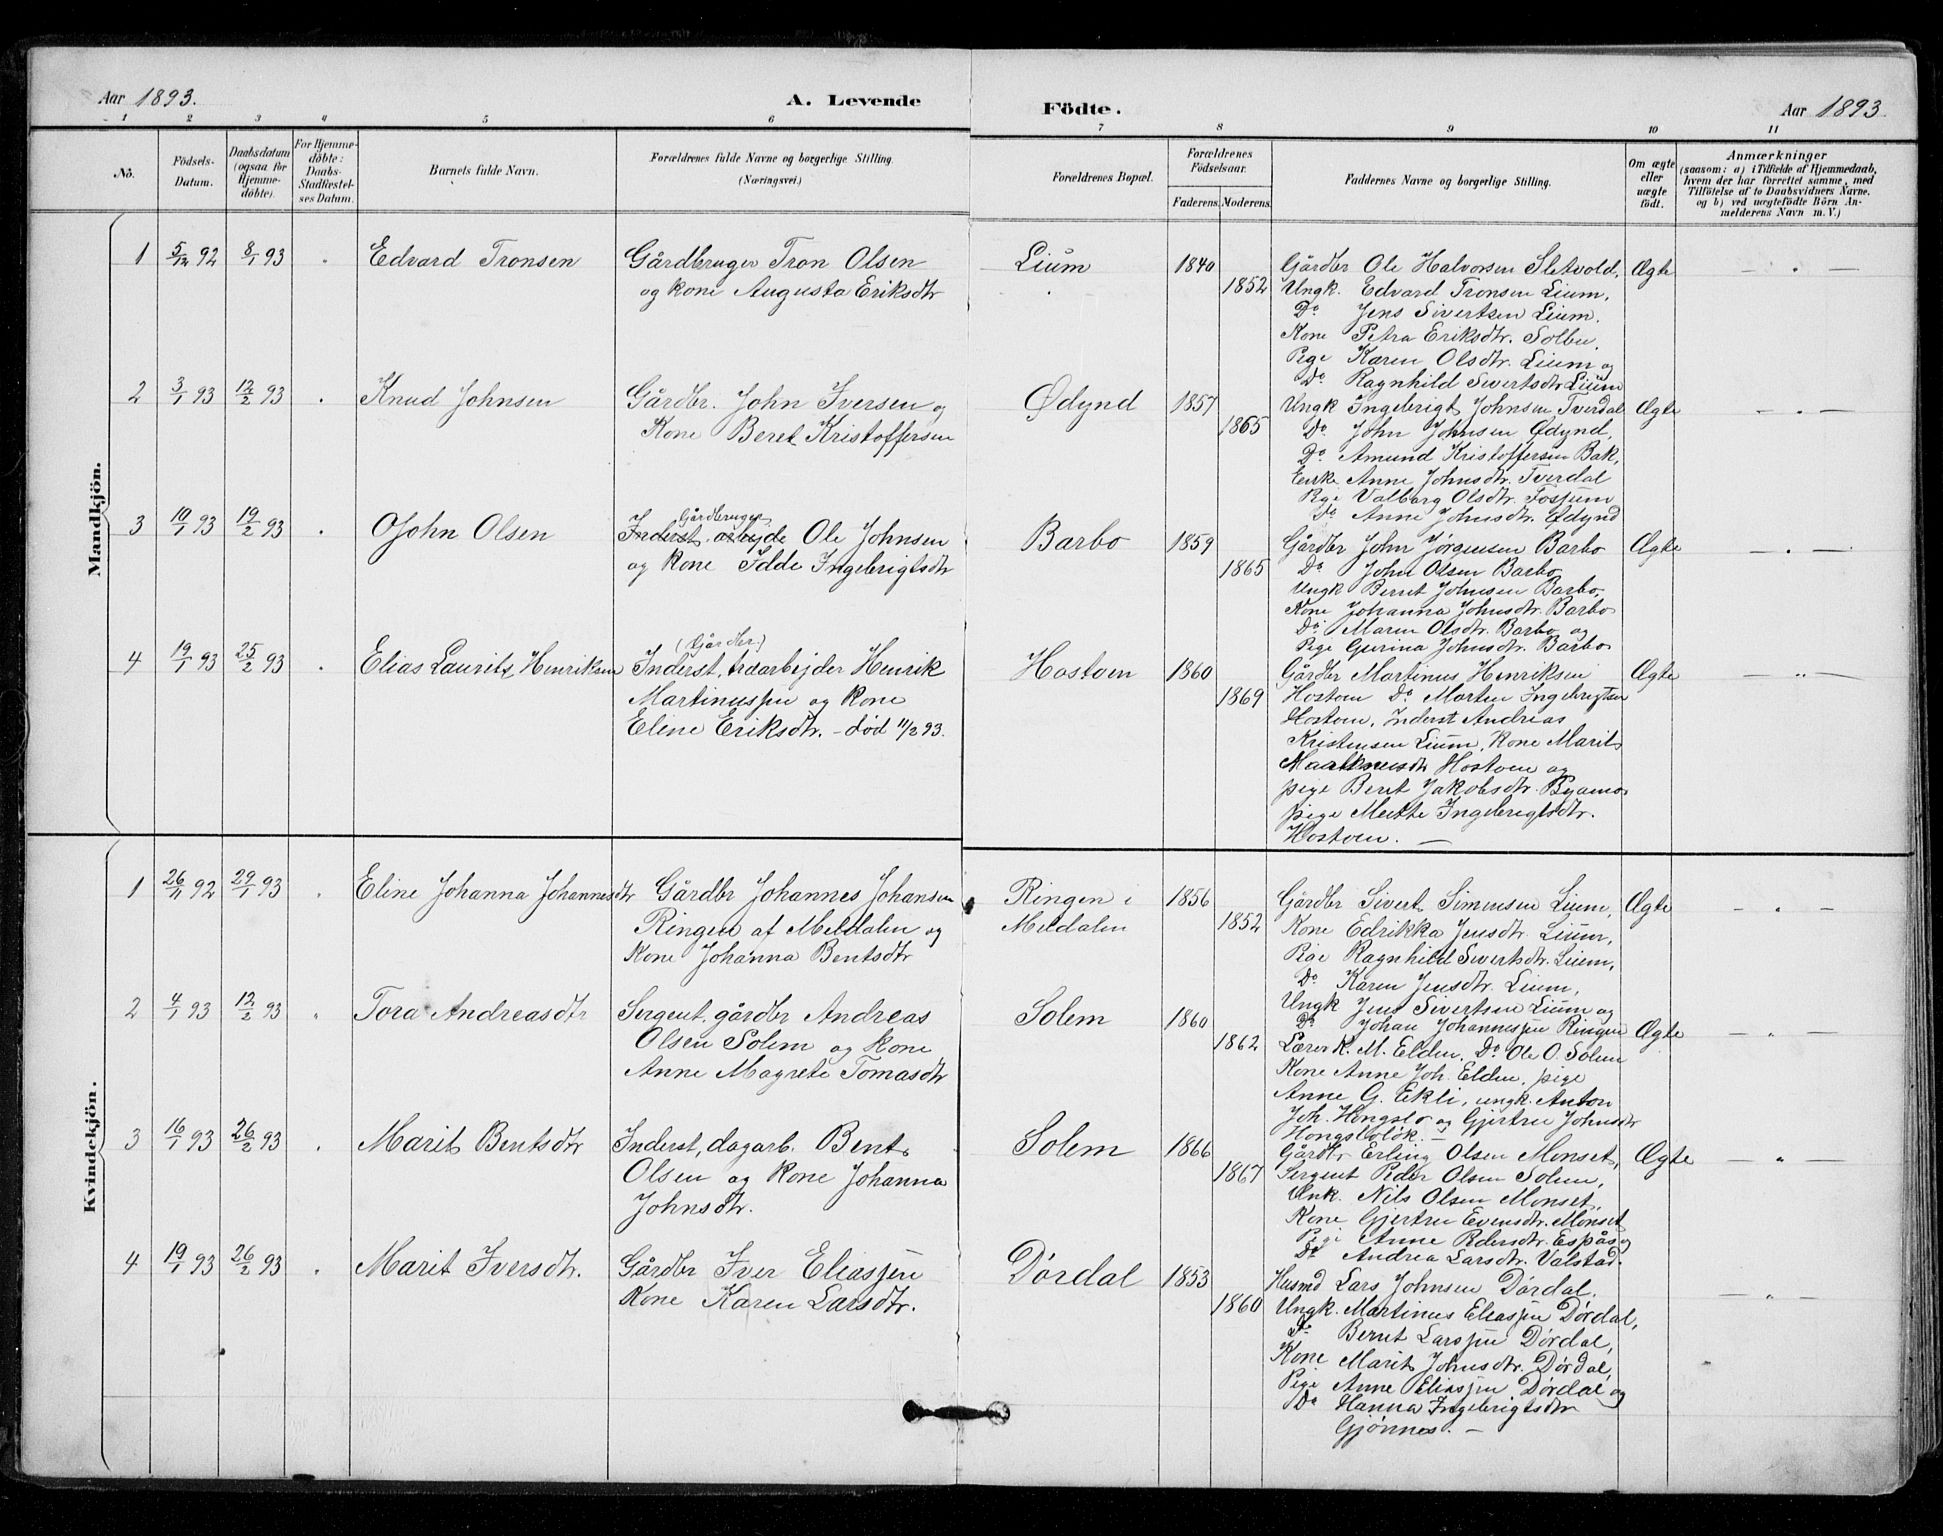 Aar 1893.
A. Levende Födte.
Aar 1893
1 2 3 4 5 6 7 8 9 10 11
No.
Födsels-Datum.
Daabsdatum (ogsaa for Hjemmedöbte).
For Hjemmedöbte: Daabs-Stadfæstelses Datum.
Barnets fulde Navn.
Forældrenes fulde Navne og borgerlige Stilling.
(Næringsvei.)
Forældrenes Bopæl.
Forældrenes Födselsaar.
Faderens. Moderens.
Faddernes Navne og borgerlige Stilling.
Om ægte eller uægte födt.
Anmærkninger
(saasom: a) i Tilfælde af Hjemmedaab,
hvem der har forrettet samme, med
Tilföielse af to Daabsvidners Navne.
og b) ved uægtefödte Börn Anmelderens Navn m. V.)
Mandkjön.
1 5/12 92 8/1 93 Edvard Tronsen
Gårdbruger Tron Olsen
og kone Augusta Eriksdtr
Lium 1840 1852
Gårdbr Ole Halvorsen Sletvold,
Ungk. Edvard Tronsen Lium,
Do Jens Sivertsen Lium.
Kone Petra Eriksdtr. Solbu.
Pige Karen Olsdtr. Lium og
Do Ragnhild Sivertsdtr Lium
Ægte
2 3/1 93 12/2 93 Knud Johnsen
Gårdbr. John Iversen og
Kone Beret Kristoffersen
Ødynd 1857 1865
Ungk Ingebrigt Johnsen Tverdal
Do John Johnsen Ødynd,
Do Amund Kristoffersen Bak,
Enke Anne Johnsdtr. Tverdal
Pige Valborg Olsdtr. Fosjum
Do Anne Johnsdtr. Ødynd
Ægte
3 10/1 93 19/2 93 John Olsen
Gårdbruger
Inderst. arbejde Ole Johnsen
og Kone Idde Ingebrigtsdtr
Barbo 1859 1865
Gårdbr John Jørgensen Barbo
Do John Olsen Barbo
Ungk Bernt Johnsen Barbo,
Kone Johanna Johnsdtr. Barbo
Do Maren Olsdtr. Barbo og
Pige Gurina Johnsdtr. Barbo
Ægte
4 19/1 93 25/2 93 Elias Laurits Henriksen
(Gårdbr.)
Inderst, træarbejder Henrik
Martinussen og Kone
Eline Eriksdtr. - død 11/2 93.
Hostoen 1860 1869
Gårdbr Martinus Henriksen
Hostoen Do Morten Ingebrigtsen
Hostoen, Inderst Andreas
Kristensen Lium, Kone Marit
Hostoen og
pige Berit Jakobsdtr. Byamo
pige Mette Ingebrigtsdtr.
Hostoen. —
Ægte
Kvindekjön.
1 26/11 92 29/1 93 Eline Johanna Johannesdtr
Gårdbr Johannes Johansen
Ringen af Meldalen og
Kone Johanna Bentsdtr
Ringen i
Meldalen
1856 1852
Gårdbr Sivert Simensen Lium,
Kone Edrikka Jensdtr. Lium,
Pige Ragnhild Sivertsdtr. Lium,
Do Karen Jensdtr. Lium,
Ungk Jens Sivertsen Lium og
Do Johan Johannessen Ringen
Ægte
2 4/1 93 12/2 93 Tora Andreasdtr
Sergent, gårdbr Andreas
Olsen Solem og Kone
Anne Magrete Tomasdtr
Solem 1860 1862
Lærer K. M. Elden, Do Ole O. Solem
Kone Anne Joh. Elden, pige
Anne G. Ekli, ungk. Anton
Joh. Hongslo og Gjertru Johnsdtr
Ægte
3 16/1 93 26/2 93 Marit Bentsdtr
Inderst, dagarb. Bent
Olsen og Kone Johanna
Johnsdtr.
Solem 1866 1867
Gårdbr Erling Olsen Monset,
Sergent Peder Olsen Solem,
Unk. Nils Olsen Monset,
Kone Gjertru Evensdtr. Monset
Pige Anne Pedersdtr. Espås og
Do Andrea Larsdtr. Valstad.
Ægte
4 19/1 93 26/2 93 Marit Iversdtr.
Gårdbr Iver Eliassen
Kone Karen Larsdtr.
Dørdal 1853 1860
Husmd Lars Johnsen Dørdal,
Ungk. Martinus Eliassen Dørdal,
Do Bernt Larssen Dørdal,
Kone Marit Johnsdtr. Dørdal,
Pige Anne Eliassen Dørdal og
Do Hanna Ingebrigtsdtr
Gjønnes. —